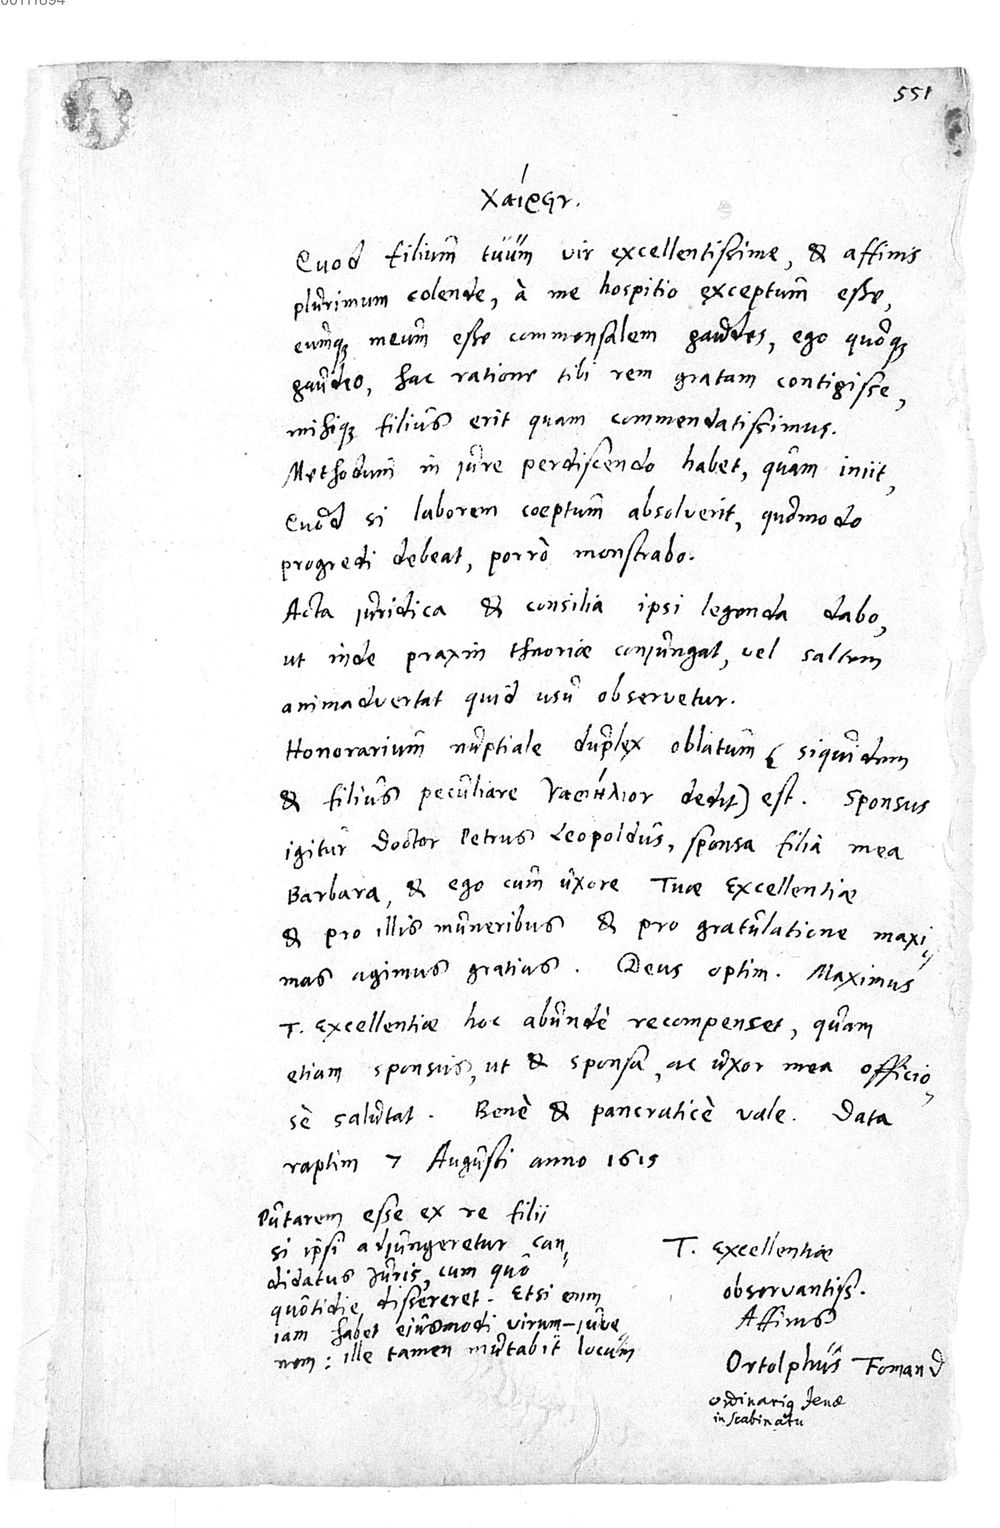 00111894
551
Χαίρειν.
Quod filium tuum vir excellentissime, & affinis
plurimum colende, à me hospitio exceptum esse,
eumq; meum esse commensalem gaudes, ego quoq;
gaudeo, hac ratione tibi rem gratam contigisse,
mihiq; filius erit quam commendatissimus.
Methodum in jure perdiscendo habet, quam iniit,
Quod si laborem coeptum absolverit, quomodo
progredi debeat, porrò monstrabo.
Acta juridica & consilia ipsi legenda dabo,
ut inde praxin theoriæ conjungat, vel saltem
animadvertat quid usu observetur.
Honorarium nuptiale duplex oblatum ( siquidem
& filius peculiare γαμήλιον dedit) est. Sponsus
igitur Doctor Petrus Leopoldus, sponsa filia mea
Barbara, & ego cum uxore Tuæ Excellentiæ
& pro illis muneribus & pro gratulatione maxi
mas agimus gratias. Deus optim. Maximus
T. Excellentiæ hoc abundè recompenset, quam
etiam sponsus, ut & sponsa, ac uxor mea officio
sè salutat. Benè & pancraticè vale. Data
raptim 7 Augusti anno 1615
Putarem esse ex re filii
si ipsi adjungeretur can,
didatus Juris, cum quo
quotidie dissereret. Etsi enim
iam habet ejusmodi virum-juve
nem: ille tamen mutabit locum
T. Excellentiæ
observantiss.
Affinis
Ortolphus Fomand
ordinariq Jenæ
in scabinatu